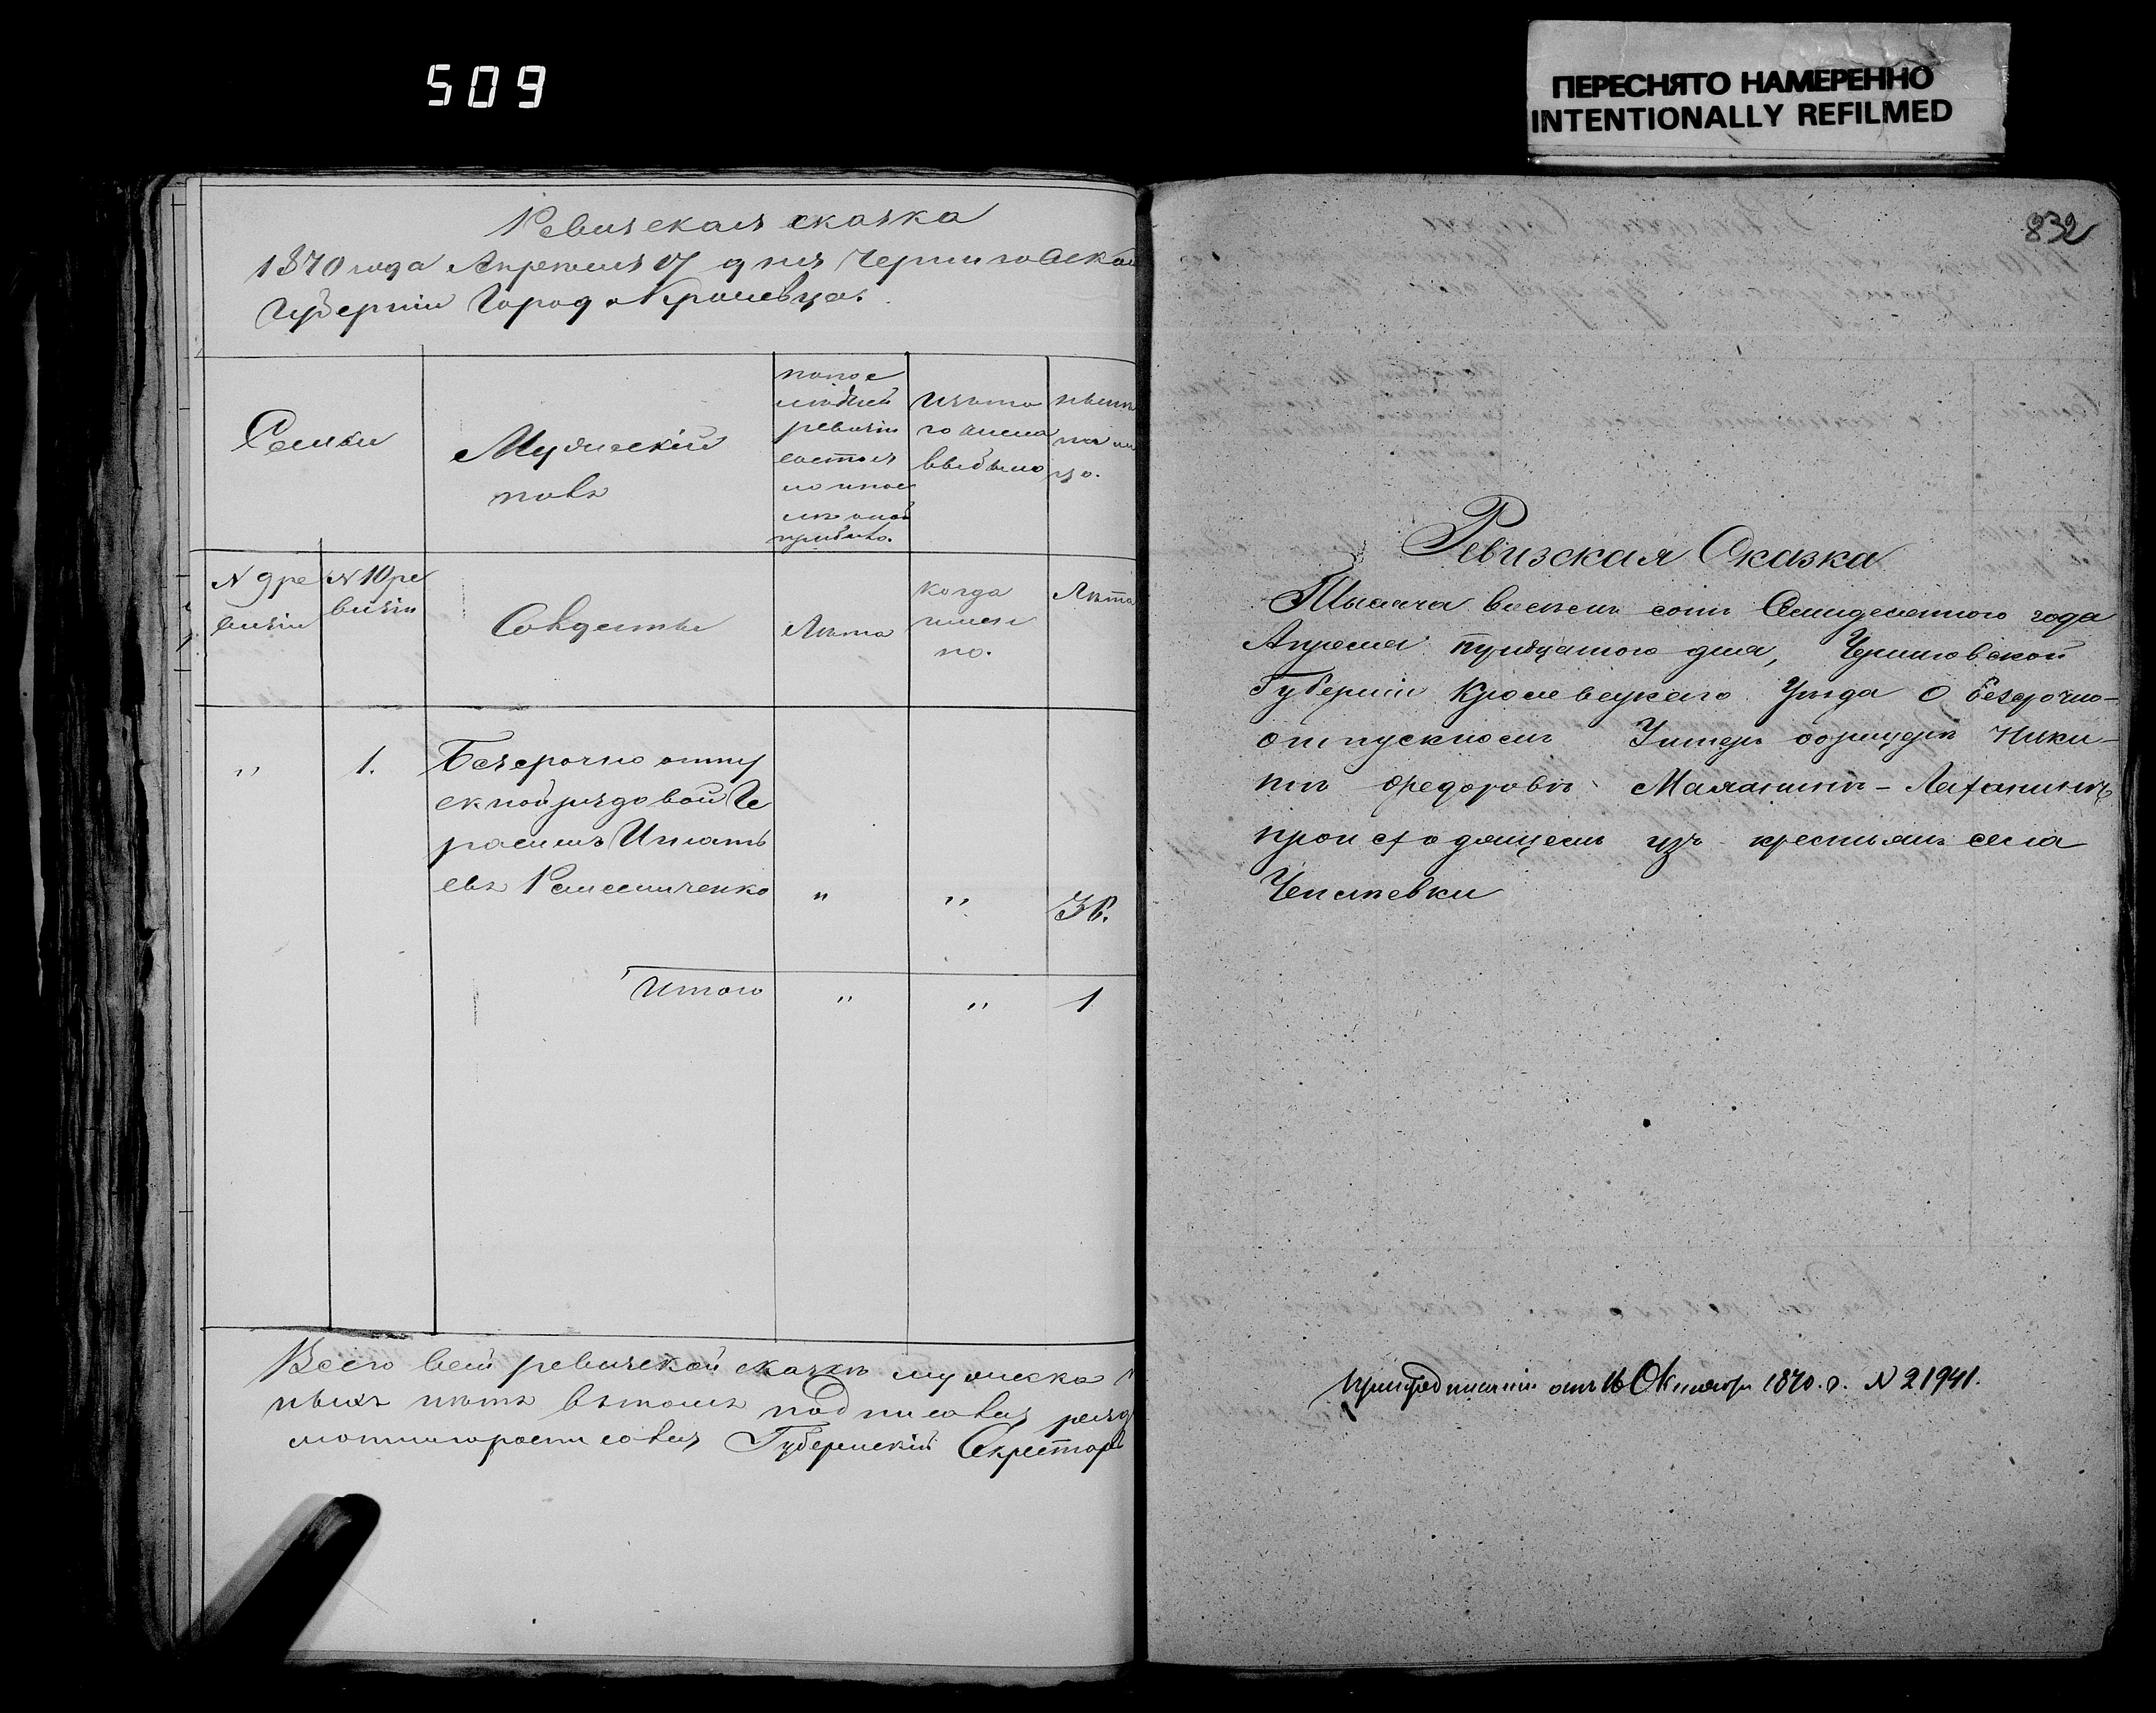 509
ПЕРЕСНЯТО НАМЕРЕННО
INTENTIONALLY REFILMED
Ревизская сказка
1870 года Апреля 17 дня Черниговской
Губерніи Города Кролевца.
Семьи
Мужескій
полъ
по пос
лѣдней
ревизіи
состоя
ло и пос
лѣ оной
прибыло.
Изъ то
го числа
выбыло
нынѣ
на ли
цо.
N 9 ре
визіи
N 10 ре
визіи
Лѣта
когда
имен
но.
Лѣта
" 1. Безсрочно отпу
скной рядовой Ге
расимъ Игнать
евъ " " 36.
Итого " " 1
Всего въ сей ревизской сказкѣ мужеска
подписовался
Губернскій Секретарь
832
Ревизская Сказка
Тысяча восемь сотъ Семидесятого года
Апреля тридцатого дня, Черниговской
Губерніи Кролевецкаго Уѣзда О безсрочно-
отпускномъ Унтеръ офицерѣ Ники-
тѣ Федоровѣ Малахинѣ-
происходящемъ изъ крестьянъ села
Чепліевки
При предписаніи отъ 16 Октября 1870. г. N 21941.